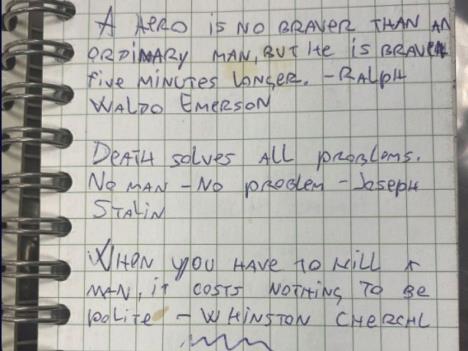 A HERO IS NO BRAVER THAN AN
ORDINARY MAN, BUT HE IS BRAVER
FIVE MINUTES LONGER. - RALPH
WALDO EMERSON
DEATH SOLVES ALL PROBLEMS.
NO MAN - NO PROBLEM - JOSEPH
STALIN
WHEN YOU HAVE TO KILL A
MAN, IT COSTS NOTHING TO BE
POLITE - WHINSTON CHERCHL